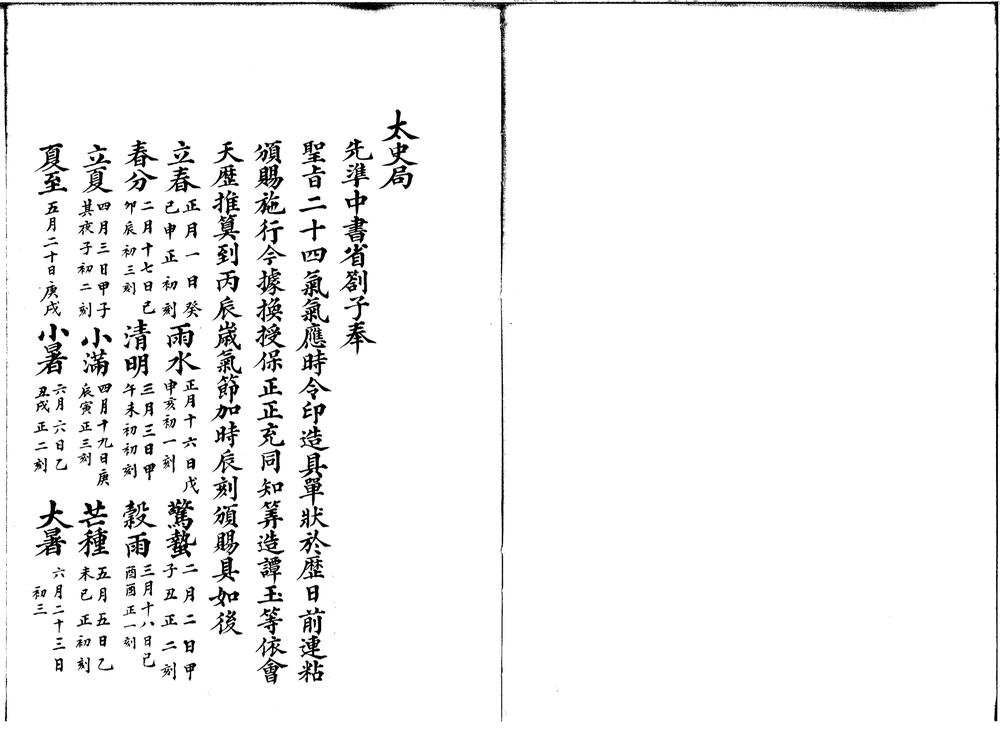 太史局
先準中書省劄子奉
聖旨二十四氣氣應時令印造具單狀於歷日前連粘
頒賜施行今據換授保正正充同知筭造譚玉等依會
天歷推算到丙辰歲氣節加時辰刻頒賜具如後
立春正月一日癸巳申正初刻雨水正月十六日戊申亥初一刻驚蟄二月二日甲子丑正二刻
春分二月十七日己卯辰初三刻清明三月三日甲午未初初刻穀雨三月十八日己酉酉正一刻
立夏四月三日甲子其夜子初二刻小滿四月十九日庚辰寅正三刻芒種五月五日乙未巳正初刻
夏至五月二十日庚戌小暑六月六日乙丑戌正二刻大暑六月二十三日初三